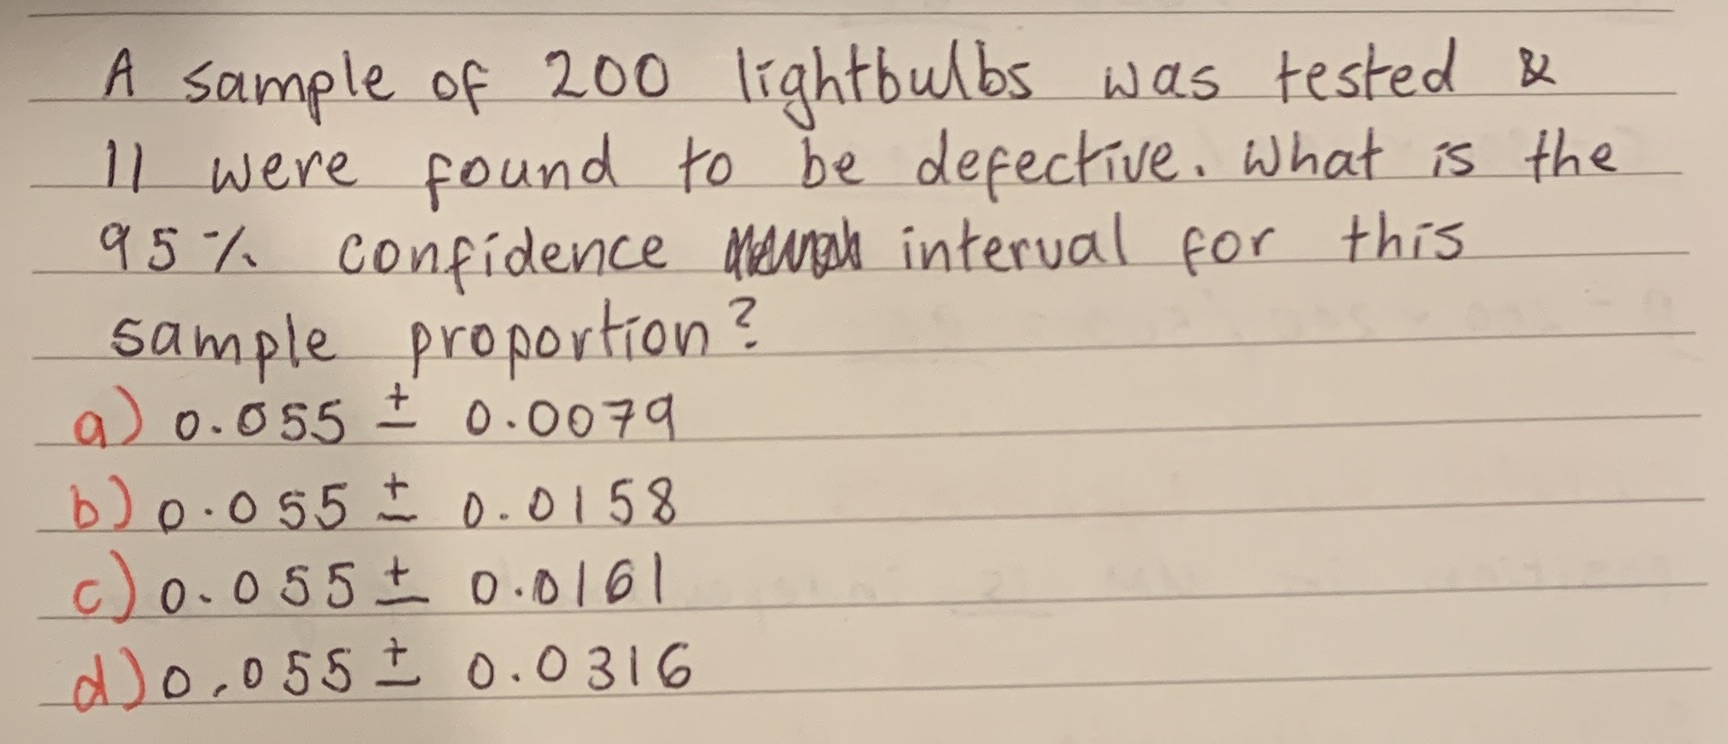 A sample of 200 lightbulbs was tested &
11 were found to be defective. What is the
95% confidence interval for this
sample proportion?
a) 0.055 ± 0.0079
b) 0.055 ± 0.0158
c) 0.055 ± 0.0161
d) 0.055 ± 0.0316